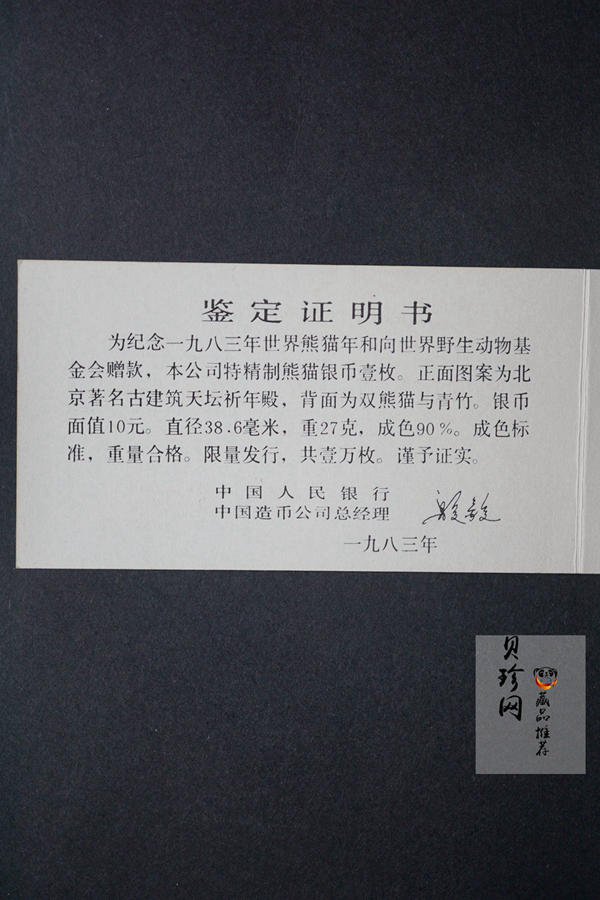 鉴定证明书
为纪念一九八三年世界熊猫年和向世界野生动物基
金会赠款，本公司特精制熊猫银币壹枚。正面图案为北
京著名古建筑天坛祈年殿，背面为双熊猫与青竹。银币
面值10元。直径38.6毫米，重27克，成色90%。成色标
准，重量合格。限量发行，共壹万枚。谨予证实。
中国人民银行
中国造币公司总经理
一九八三年
贝珍网
藏品推荐